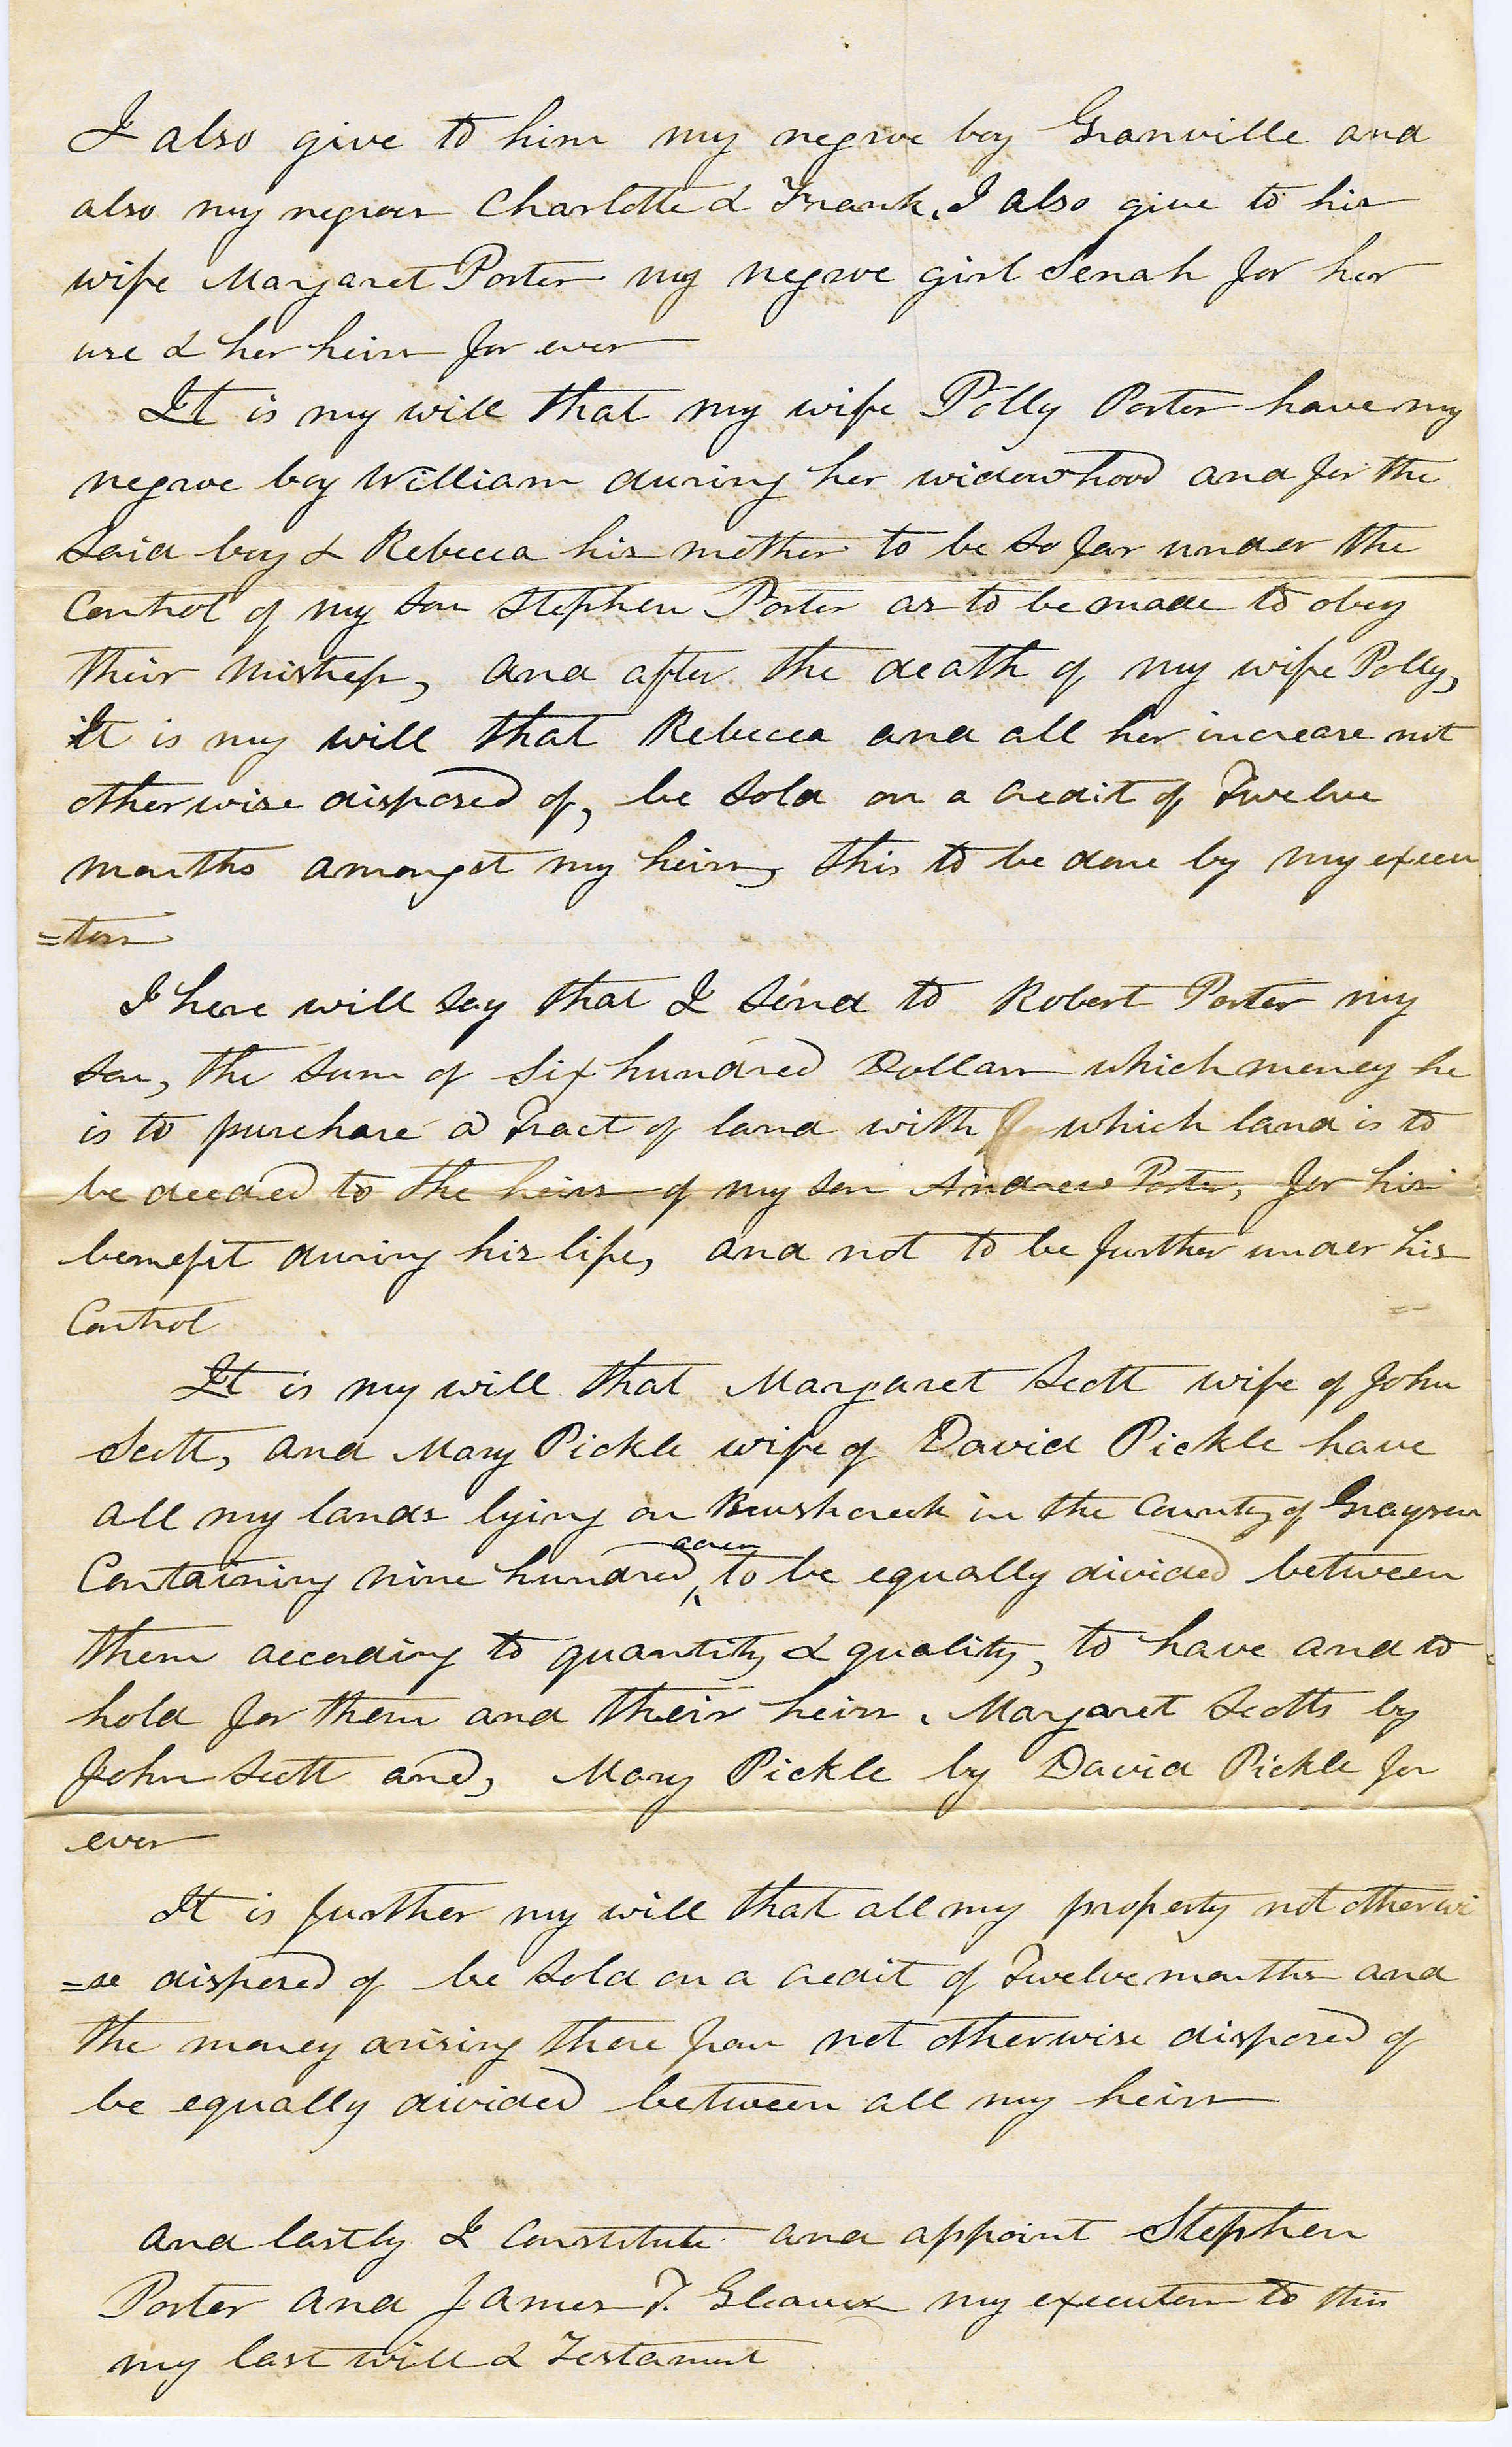 I also give to him my negroe boy Granville and
also my negroes Charlotte & Frank. I also give to his
wife Margaret Porter my negroe girl Senah for her
use & her heirs for ever
It is my will that my wife Polly Porter have my
negroe boy William during her widowhood and for the
said boy & Rebecca his mother to be so far under the
Control of my son Stephen Porter as to be made to obey
their mistress, and after the death of my wife Polly,
it is my will that Rebecca and all her increase not
otherwise disposed of, be sold on a credit of Twelve
months amongst my heirs, this to be done by my execu
=tors
I here will say that I send to Robert Porter my
son, the sum of Six hundred Dollars which money he
is to purchase a Tract of land with which land is to
be deeded to the heirs of my son Andrew Porter, for his
bennefit during his life, and not to be further under his
Control
It is my will that Margaret Scott wife of John
Scott, and Mary Pickle wife of David Pickle have
all my lands lying on Brushcreek in the County of Grayson
Containing nine hundred acres to be equally divided between
them according to quantity & quality, to have and to
hold for them and their heirs. Margaret Scotts by
John Scott and, Mary Pickle by David Pickle for
ever
It is further my will that all my property not otherwi
=se disposed of be sold on a credit of Twelve months and
the money arising there from not otherwise disposed of
be equally divided between all my heirs
and lastly I Constitute and appoint Stephen
Porter and James T. Gleaves my executors to this
my last will & Testament